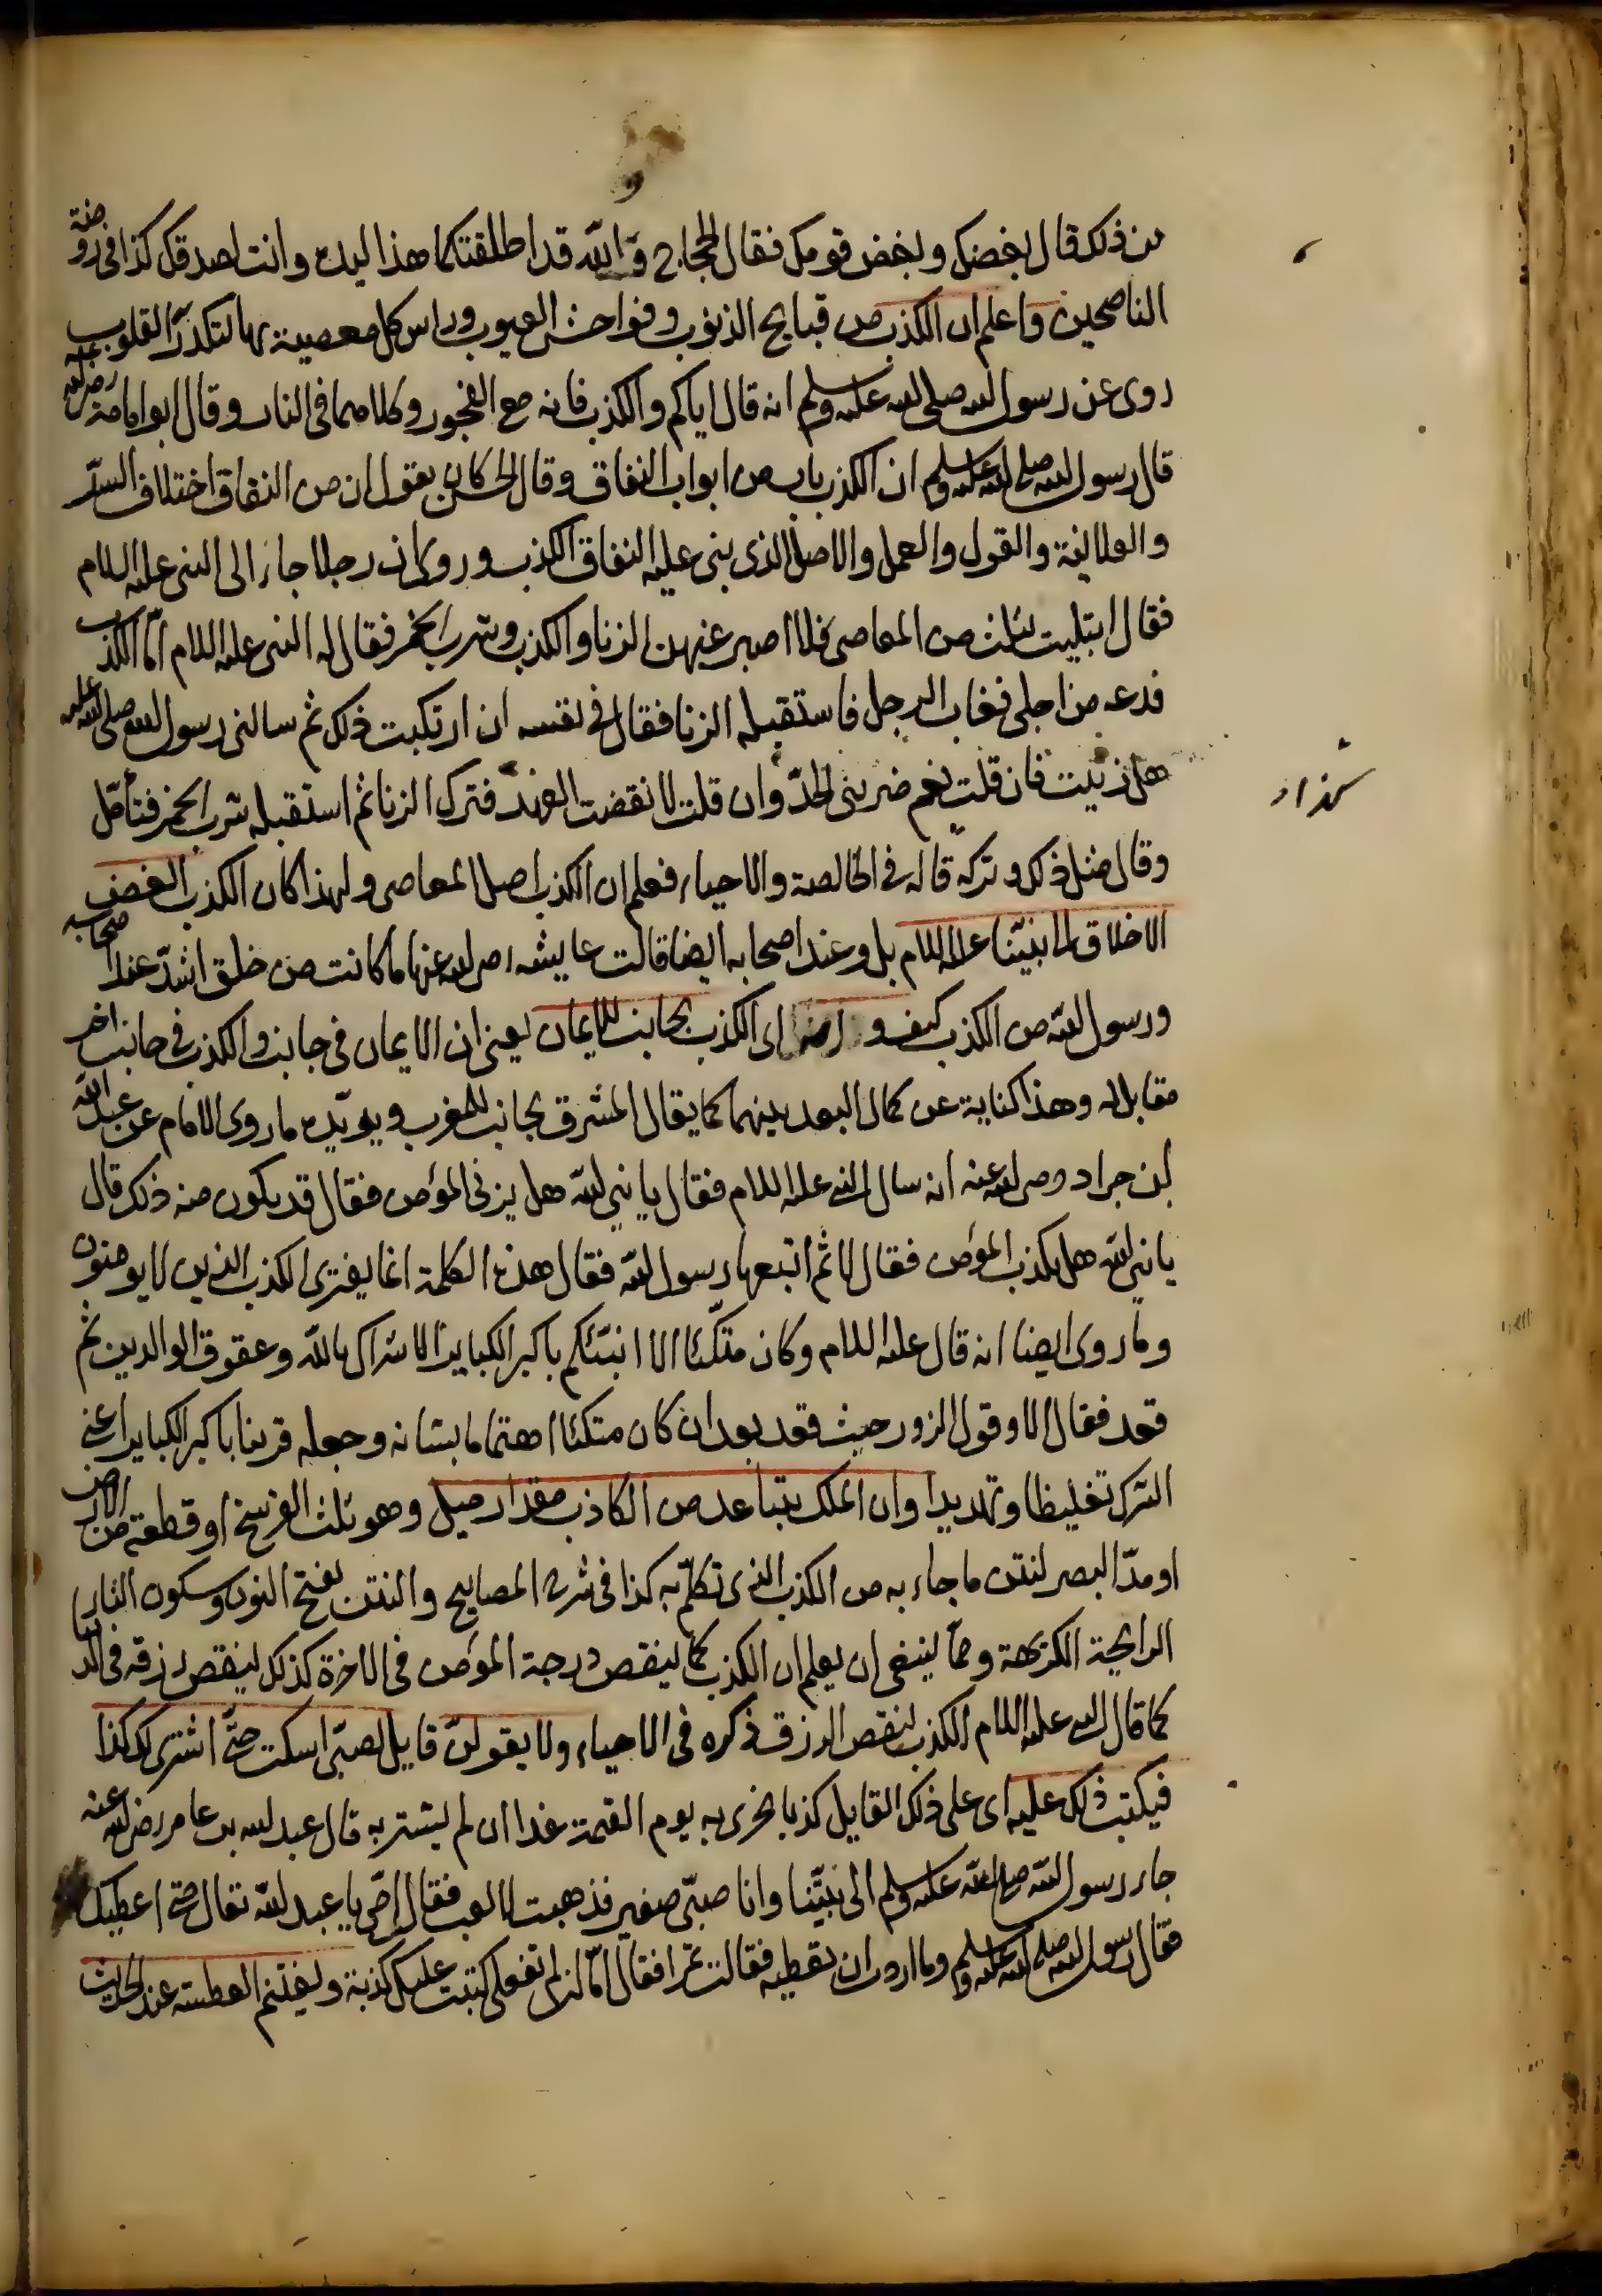 من ذلك قال بغضك وبغض قومك فقال الحجاج والله قد اطلقتكما هذا ليده وانت لصدقك كذا في روضة
الناصحين واعلم ان الكذب من قبايح الذنوب وفواحش العيوب وراس كل معصية بها لتكدر القلوب
روى عن رسول الله صلى الله عليه وسلم انه قال اياكم والكذب فانه مع الفجور وكلاهما في النار وقال ابو امامة رضى الله عنه
قال رسول الله صلى الله عليه وسلم ان الكذب باب من ابواب النفاق وقال الحسن كان يقول ان من النفاق اختلاف السر
والعلانية والقول والعمل والاصل الذى بنى عليه النفاق الكذب وروى ان رجلا جاء الى النبى عليه السلام
فقال ابتليت بثلث من المعاصى فلا اصبر عنهن الزنا والكذب وشرب الخمر فقال له النبى عليه السلام اما الكذب
فدعه من اجلى فغاب الرجل فاستقبله الزنا فقال في نفسه ان ارتكبت ذلك ثم سالنى رسول الله صلى الله عليه
هل زنيت فان قلت نعم ضربنى الحد وان قلت لا نقضت العهد فترك الزنا ثم استقبله شرب الخمر فتأمل
وقال مثل ذلك وتركه قاله في الخالصة والاحياء فعلم ان الكذب اصل المعاصى ولهذا كان الكذب ابغض
الاخلاق الى نبينا عليه السلام بل وعند اصحابه ايضا قالت عايشه رضى الله عنها ما كانت من خلق اشد عند اصحابه
ورسول الله من الكذب كيف و اى الكذب مجانب للايمان يعنى ان الايمان في جانب والكذب في جانب اخر
مقابل له وهذا كناية عن كمال البعد بينهما كما يقال المشرق بجانب المغرب ويؤيده ما روى الامام عن عبد الله
بن جراد رضى الله عنه انه سال النبى عليه السلام فقال يا نبى الله هل يزنى المؤمن فقال قد يكون منه ذلك قال
يا نبى الله هل يكذب المؤمن فقال لا ثم اتبعها رسول الله فقال هذه الكلمة انما يفترى الكذب الذين لا يؤمنون
وما روى ايضا انه قال عليه السلام وكان متكئا الا انبئكم باكبر الكباير الاشراك بالله وعقوق الوالدين ثم
قعد فقال الا وقول الزور حيث قعد بعد ان كان متكئا اهتماما بشانه وجعله قرينا باكبر الكباير اعنى
الشرك تغليظا وتهديدا وان الملك يتباعد من الكاذب مقدار ميل وهو ثلث الفرسخ او قطعة من الارض
او مد البصر لنتن ما جاء به من الكذب الذى تكلم به كذا في شرح المصابيح والنتن بفتح النون وسكون التاء
الرايحة الكريهة ومما ينبغى ان يعلم ان الكذب كما ينقص درجة المؤمن في الاخرة كذلك ينقص رزقه في الدنيا
كما قال النبى عليه السلام الكذب ينقص الرزق ذكره في الاحياء ولا يقولن قايل لصبى اسكت حتى اشترى لك كذا
فيكتب ذلك عليه اى على ذلك القايل كذبا يخزى به يوم القيمة غدا ان لم يشتر به قال عبد الله بن عامر رضى الله عنه
جاء رسول الله صلى الله عليه وسلم الى بيتنا وانا صبى صغير فذهبت لالعب فقال امى يا عبد الله تعال حتى اعطيك
فقال رسول الله صلى الله عليه وسلم وما اردت ان تعطيه فقالت تمرا فقال اما لو لم تفعلى كتبت عليك كذبة ويغتنم العطسة عند الحديث